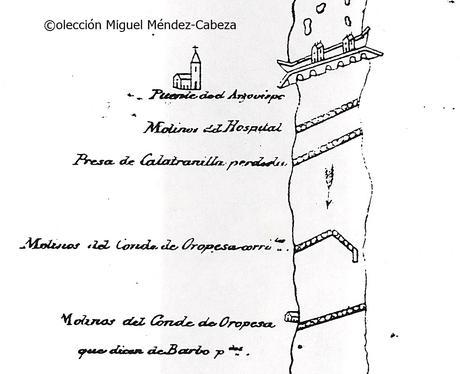 ©olección Miguel Méndez-Cabeza
Puente del Arzovispo
Molinos del Hospital
Presa de Calatranilla perdida
Molinos del Conde de Oropesa corri.tes
Molinos del Conde de Oropesa
que dicen de Barbo p.dos.